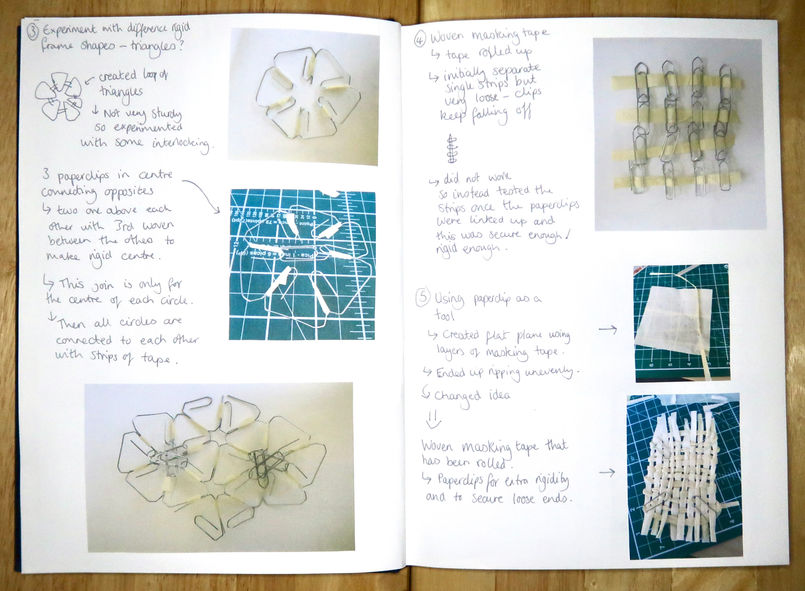 ③ Experiment with difference rigid
frame shapes - triangles?
← created loop of
triangles
↓ Not very sturdy
so experimented
with some interlocking.
3 paperclips in centre
connecting opposites
↳ two one above each
other with 3rd woven
between the others to
make rigid centre.
↳ This join is only for
the centre of each circle.
↓ Then all circles are
connected to each other
with strips of tape.
④ Woven masking tape
↳ tape rolled up
↳ initially separate
single strips but
very loose - clips
keep falling off
↳ did not work
so instead tested the
strips once the paperclips
were linked up and
this was secure enough/
rigid enough.
⑤ Using paperclip as a
tool
↳ Created flat plane using
layers of masking tape.
↳ Ended up ripping unevenly.
↳ Changed idea
Woven masking tape that
has been rolled.
↳ Paperclips for extra rigidity
and to secure loose ends.